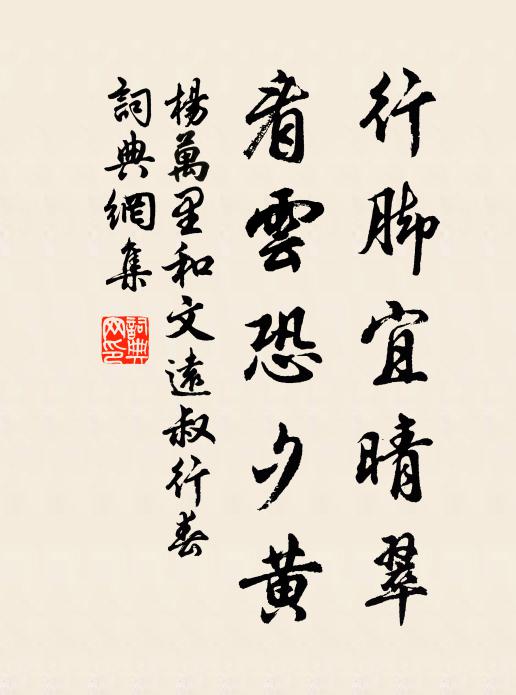 行脚宜晴翠
看雲恐夕黄
楊萬里和文遠叔行春
詞典網集
詞典网印